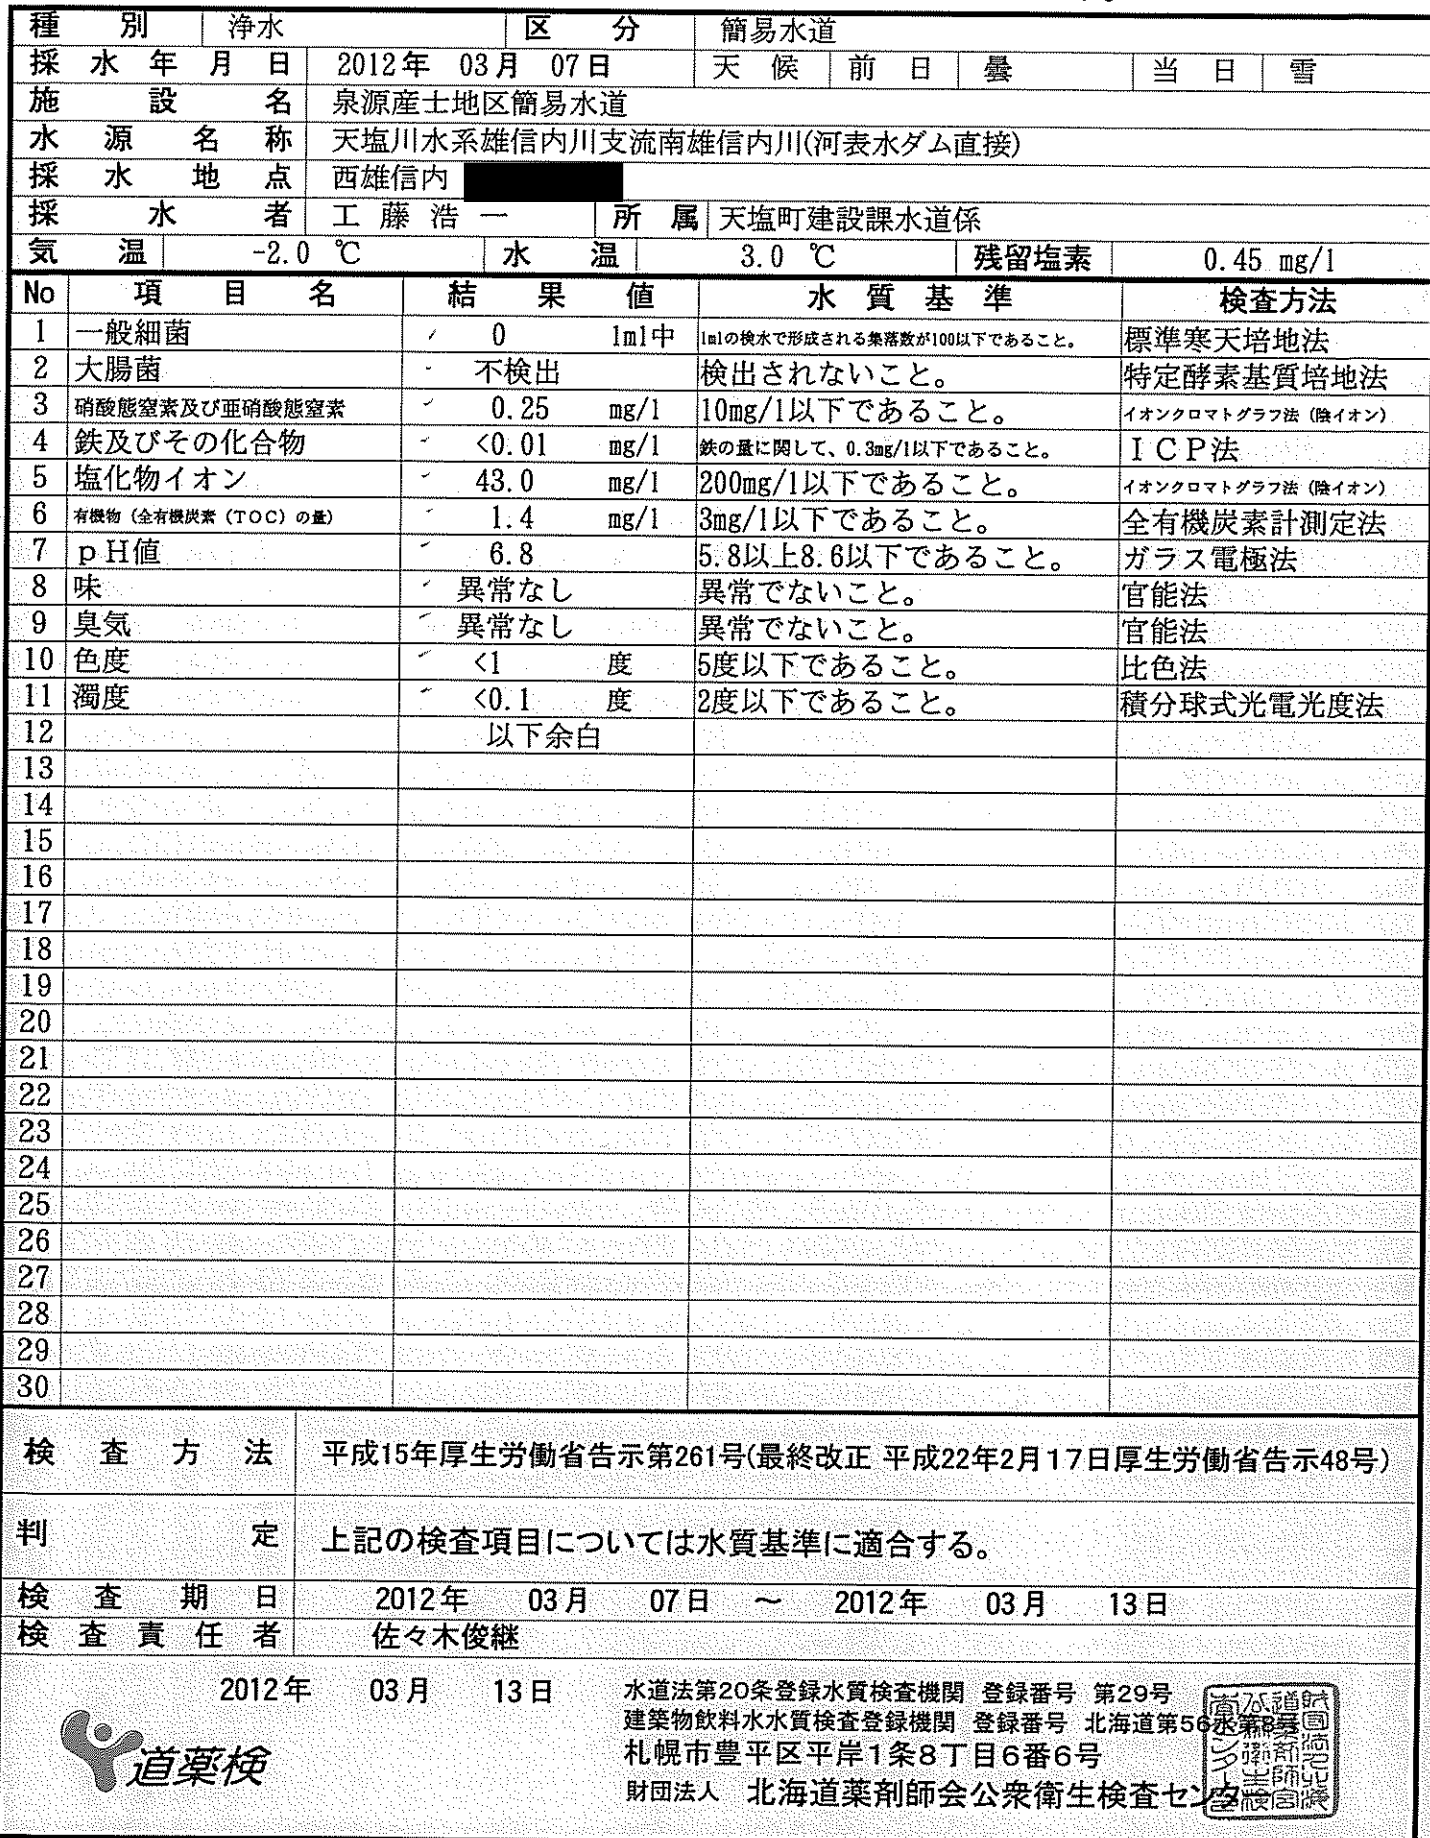 種別 浄水 区分 簡易水道
採水年月日 2012年 03月 07日 天候 前日 曇 当日 雪
施設名 泉源産士地区簡易水道
水源名称 天塩川水系雄信内川支流南雄信内川(河表水ダム直接)
採水地点 西雄信内
採水者 工藤浩一 所属 天塩町建設課水道係
気温 -2.0 ℃ 水温 3.0 ℃ 残留塩素 0.45 mg/l
No 項目名 結果値 水質基準 検査方法
1 一般細菌 0 1ml中 1mlの検水で形成される集落数が100以下であること。 標準寒天培地法
2 大腸菌 不検出 検出されないこと。 特定酵素基質培地法
3 硝酸態窒素及び亜硝酸態窒素 0.25 mg/l 10mg/l以下であること。 イオンクロマトグラフ法（陰イオン）
4 鉄及びその化合物 <0.01 mg/l 鉄の量に関して、0.3mg/l以下であること。 ＩＣＰ法
5 塩化物イオン 43.0 mg/l 200mg/l以下であること。 イオンクロマトグラフ法（陰イオン）
6 有機物（全有機炭素（TOC）の量） 1.4 mg/l 3mg/l以下であること。 全有機炭素計測定法
7 ｐH値 6.8 5.8以上8.6以下であること。 ガラス電極法
8 味 異常なし 異常でないこと。 官能法
9 臭気 異常なし 異常でないこと。 官能法
10 色度 <1 度 5度以下であること。 比色法
11 濁度 <0.1 度 2度以下であること。 積分球式光電光度法
12 以下余白
13
14
15
16
17
18
19
20
21
22
23
24
25
26
27
28
29
30
検査方法 平成15年厚生労働省告示第261号(最終改正 平成22年2月17日厚生労働省告示48号)
判定 上記の検査項目については水質基準に適合する。
検査期日 2012年 03月 07日 ～ 2012年 03月 13日
検査責任者 佐々木俊継
2012年 03月 13日
水道法第20条登録水質検査機関 登録番号 第29号
建築物飲料水水質検査登録機関 登録番号 北海道第56水第8号
札幌市豊平区平岸1条8丁目6番6号
財団法人 北海道薬剤師会公衆衛生検査センター
道薬検